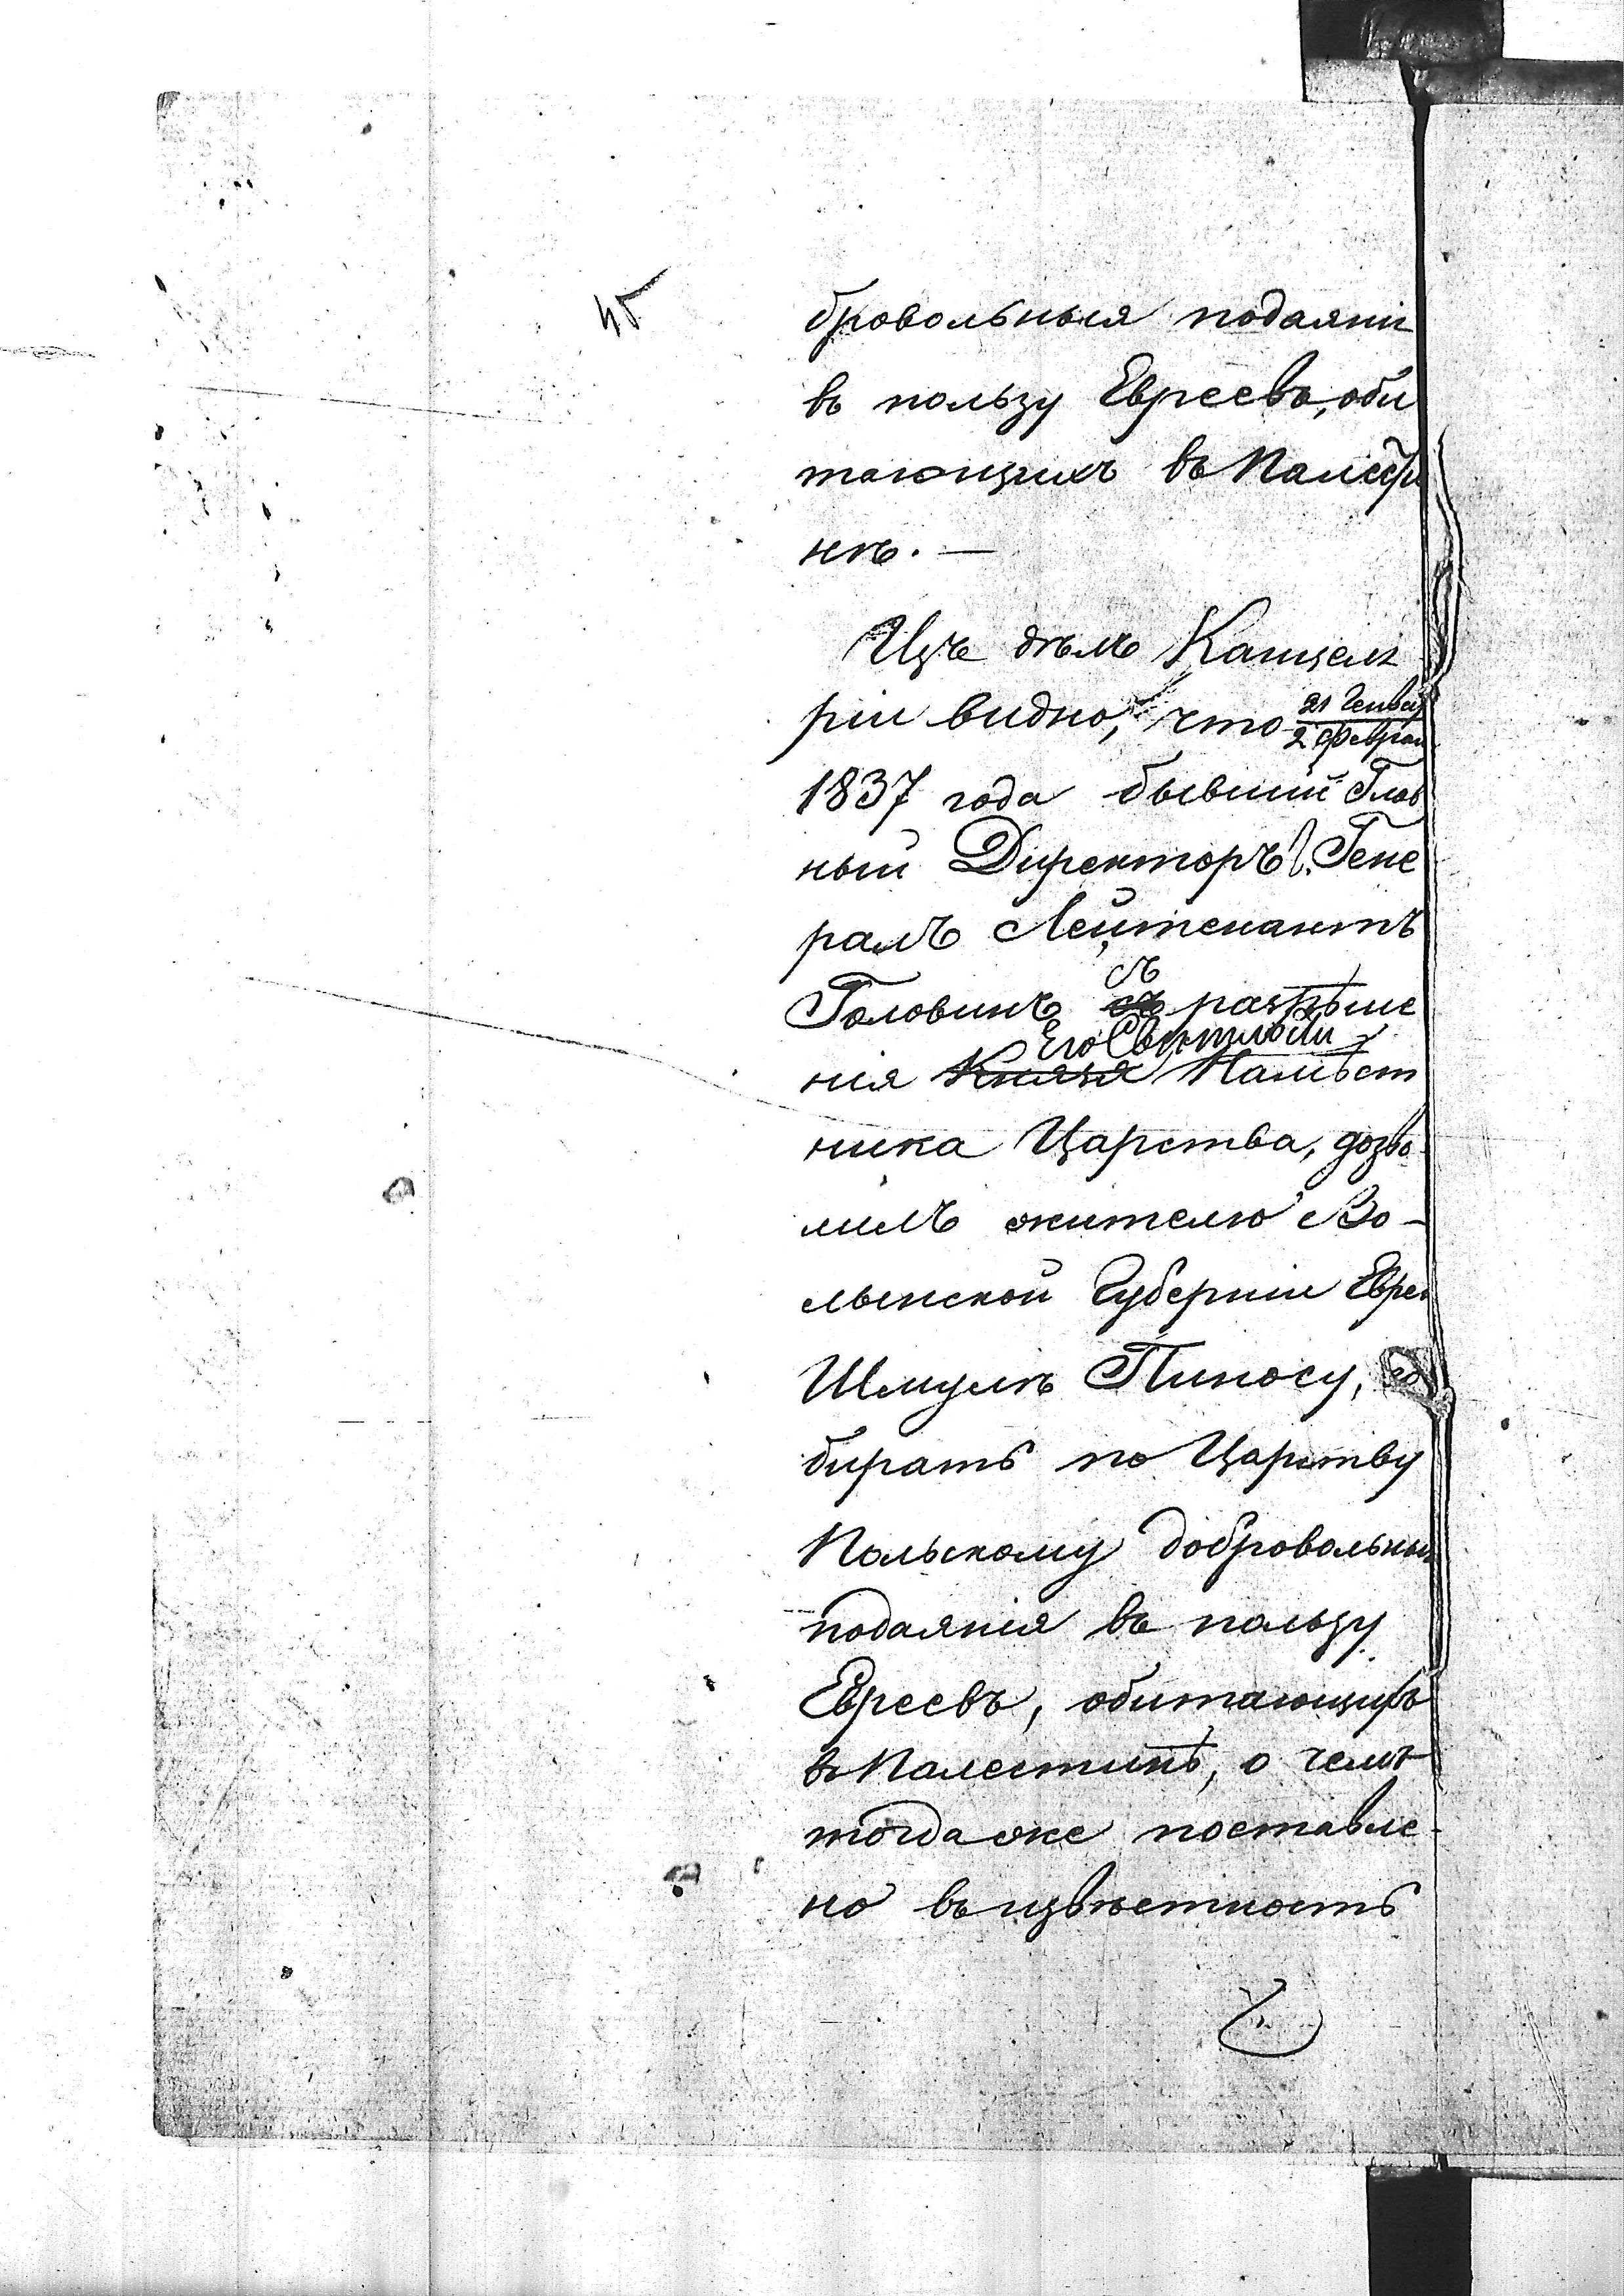 45
бровольныя подаяні
въ пользу Евреевъ, оби
тающихъ въ Палести
нѣ. —
Изъ дѣлъ Канцеля
ріи видно, что 21 Генвар
2 Феврал
1837 года бывшій Глав
ный Директоръ, Гене
ралъ Лейтенантъ
съ
Головинъ съ разрѣше
Его Свѣтлости
нія Князя Намѣст
ника Царства, дозво
лилъ жителю Во-
лынской Губерніи Еврею
Шмулю Пиносу, со
бирать по Царству
Польскому добровольныя
подаянія въ пользу
Евреевъ, обитающихъ
въ Палестинѣ, о чемъ
тогда же поставле-
но въ извѣстность